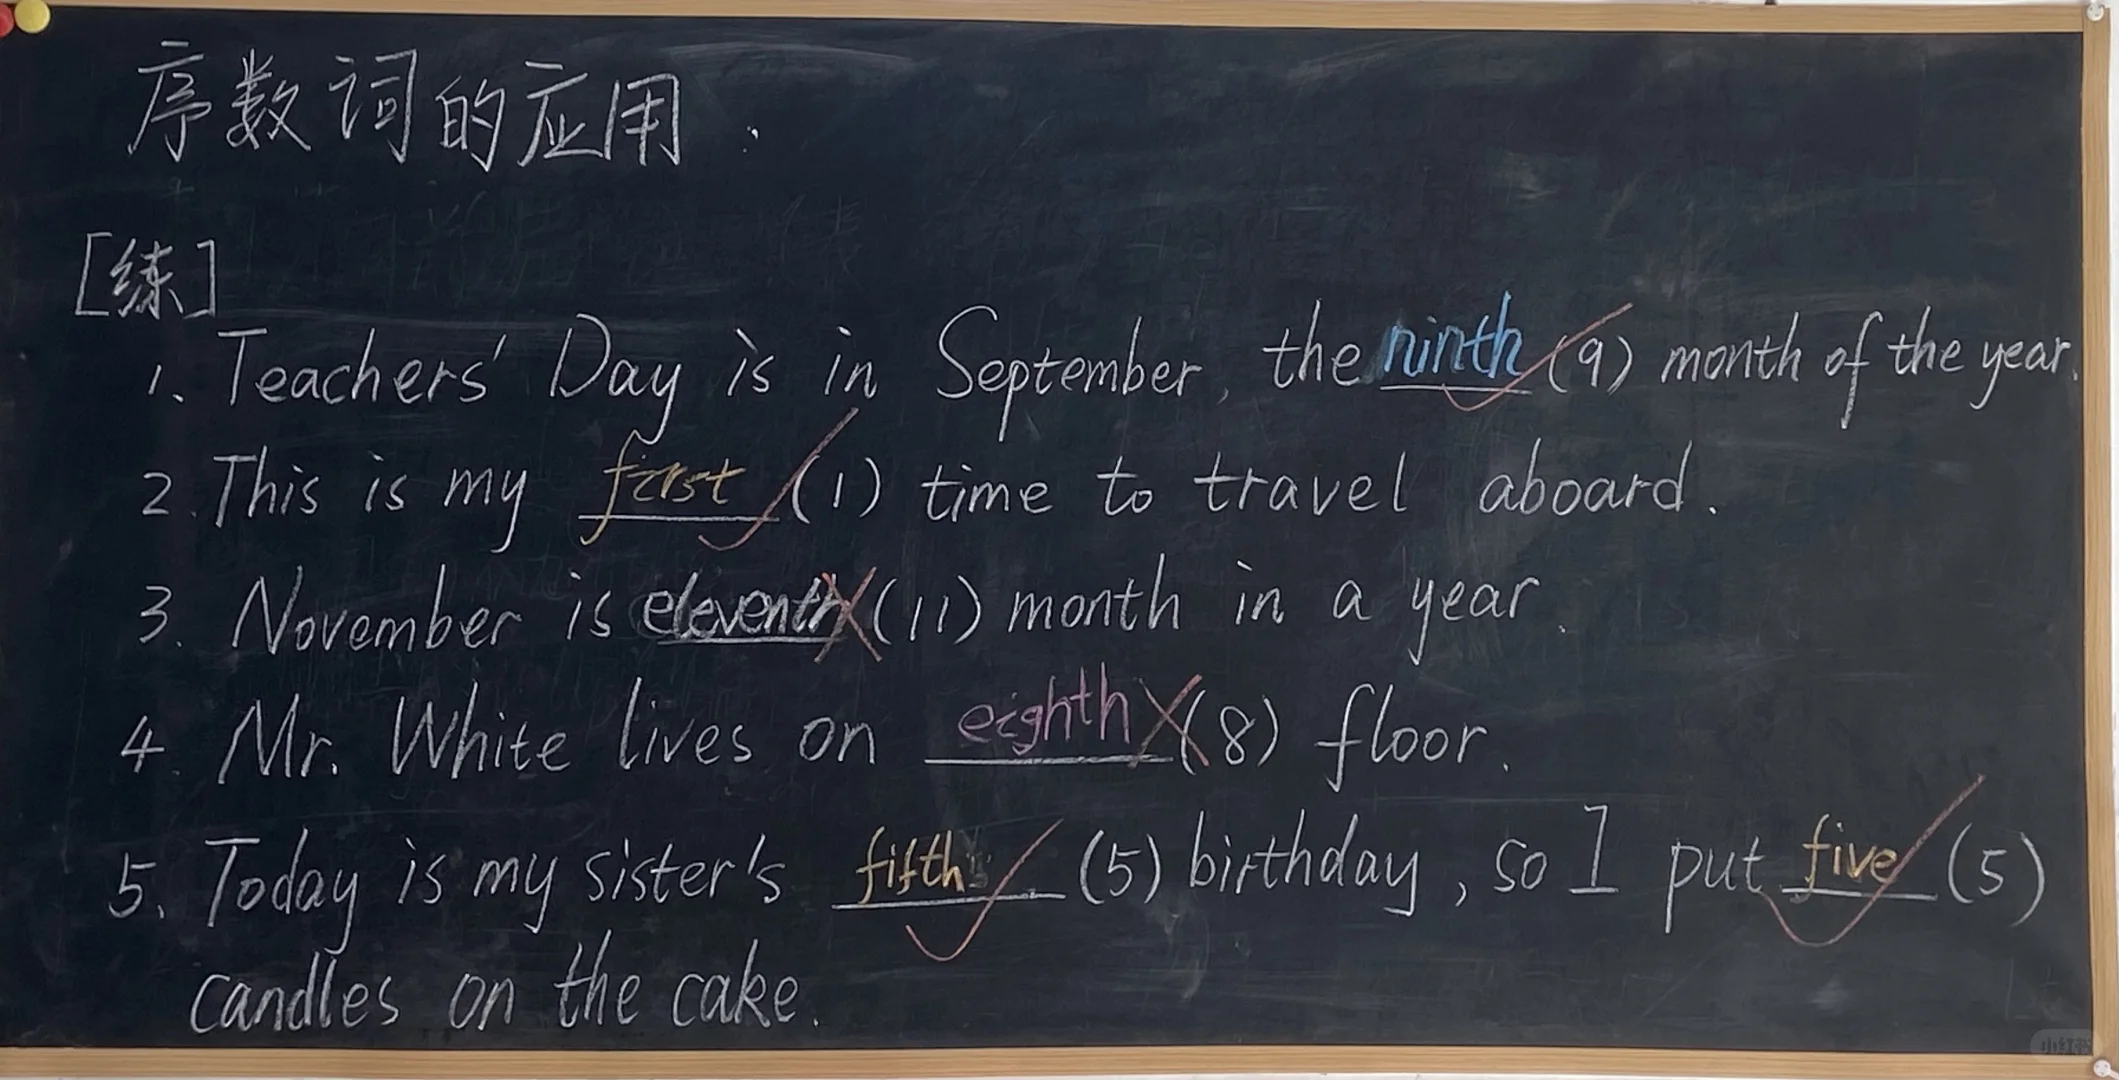 序数词的应用:
[练]
1. Teachers' Day is in September, the ninth (9) month of the year.
2. This is my first (1) time to travel aboard.
3. November is eleventh (11) month in a year.
4. Mr. White lives on eighth (8) floor.
5. Today is my sister's fifth (5) birthday, so I put five (5)
candles on the cake.
小红书